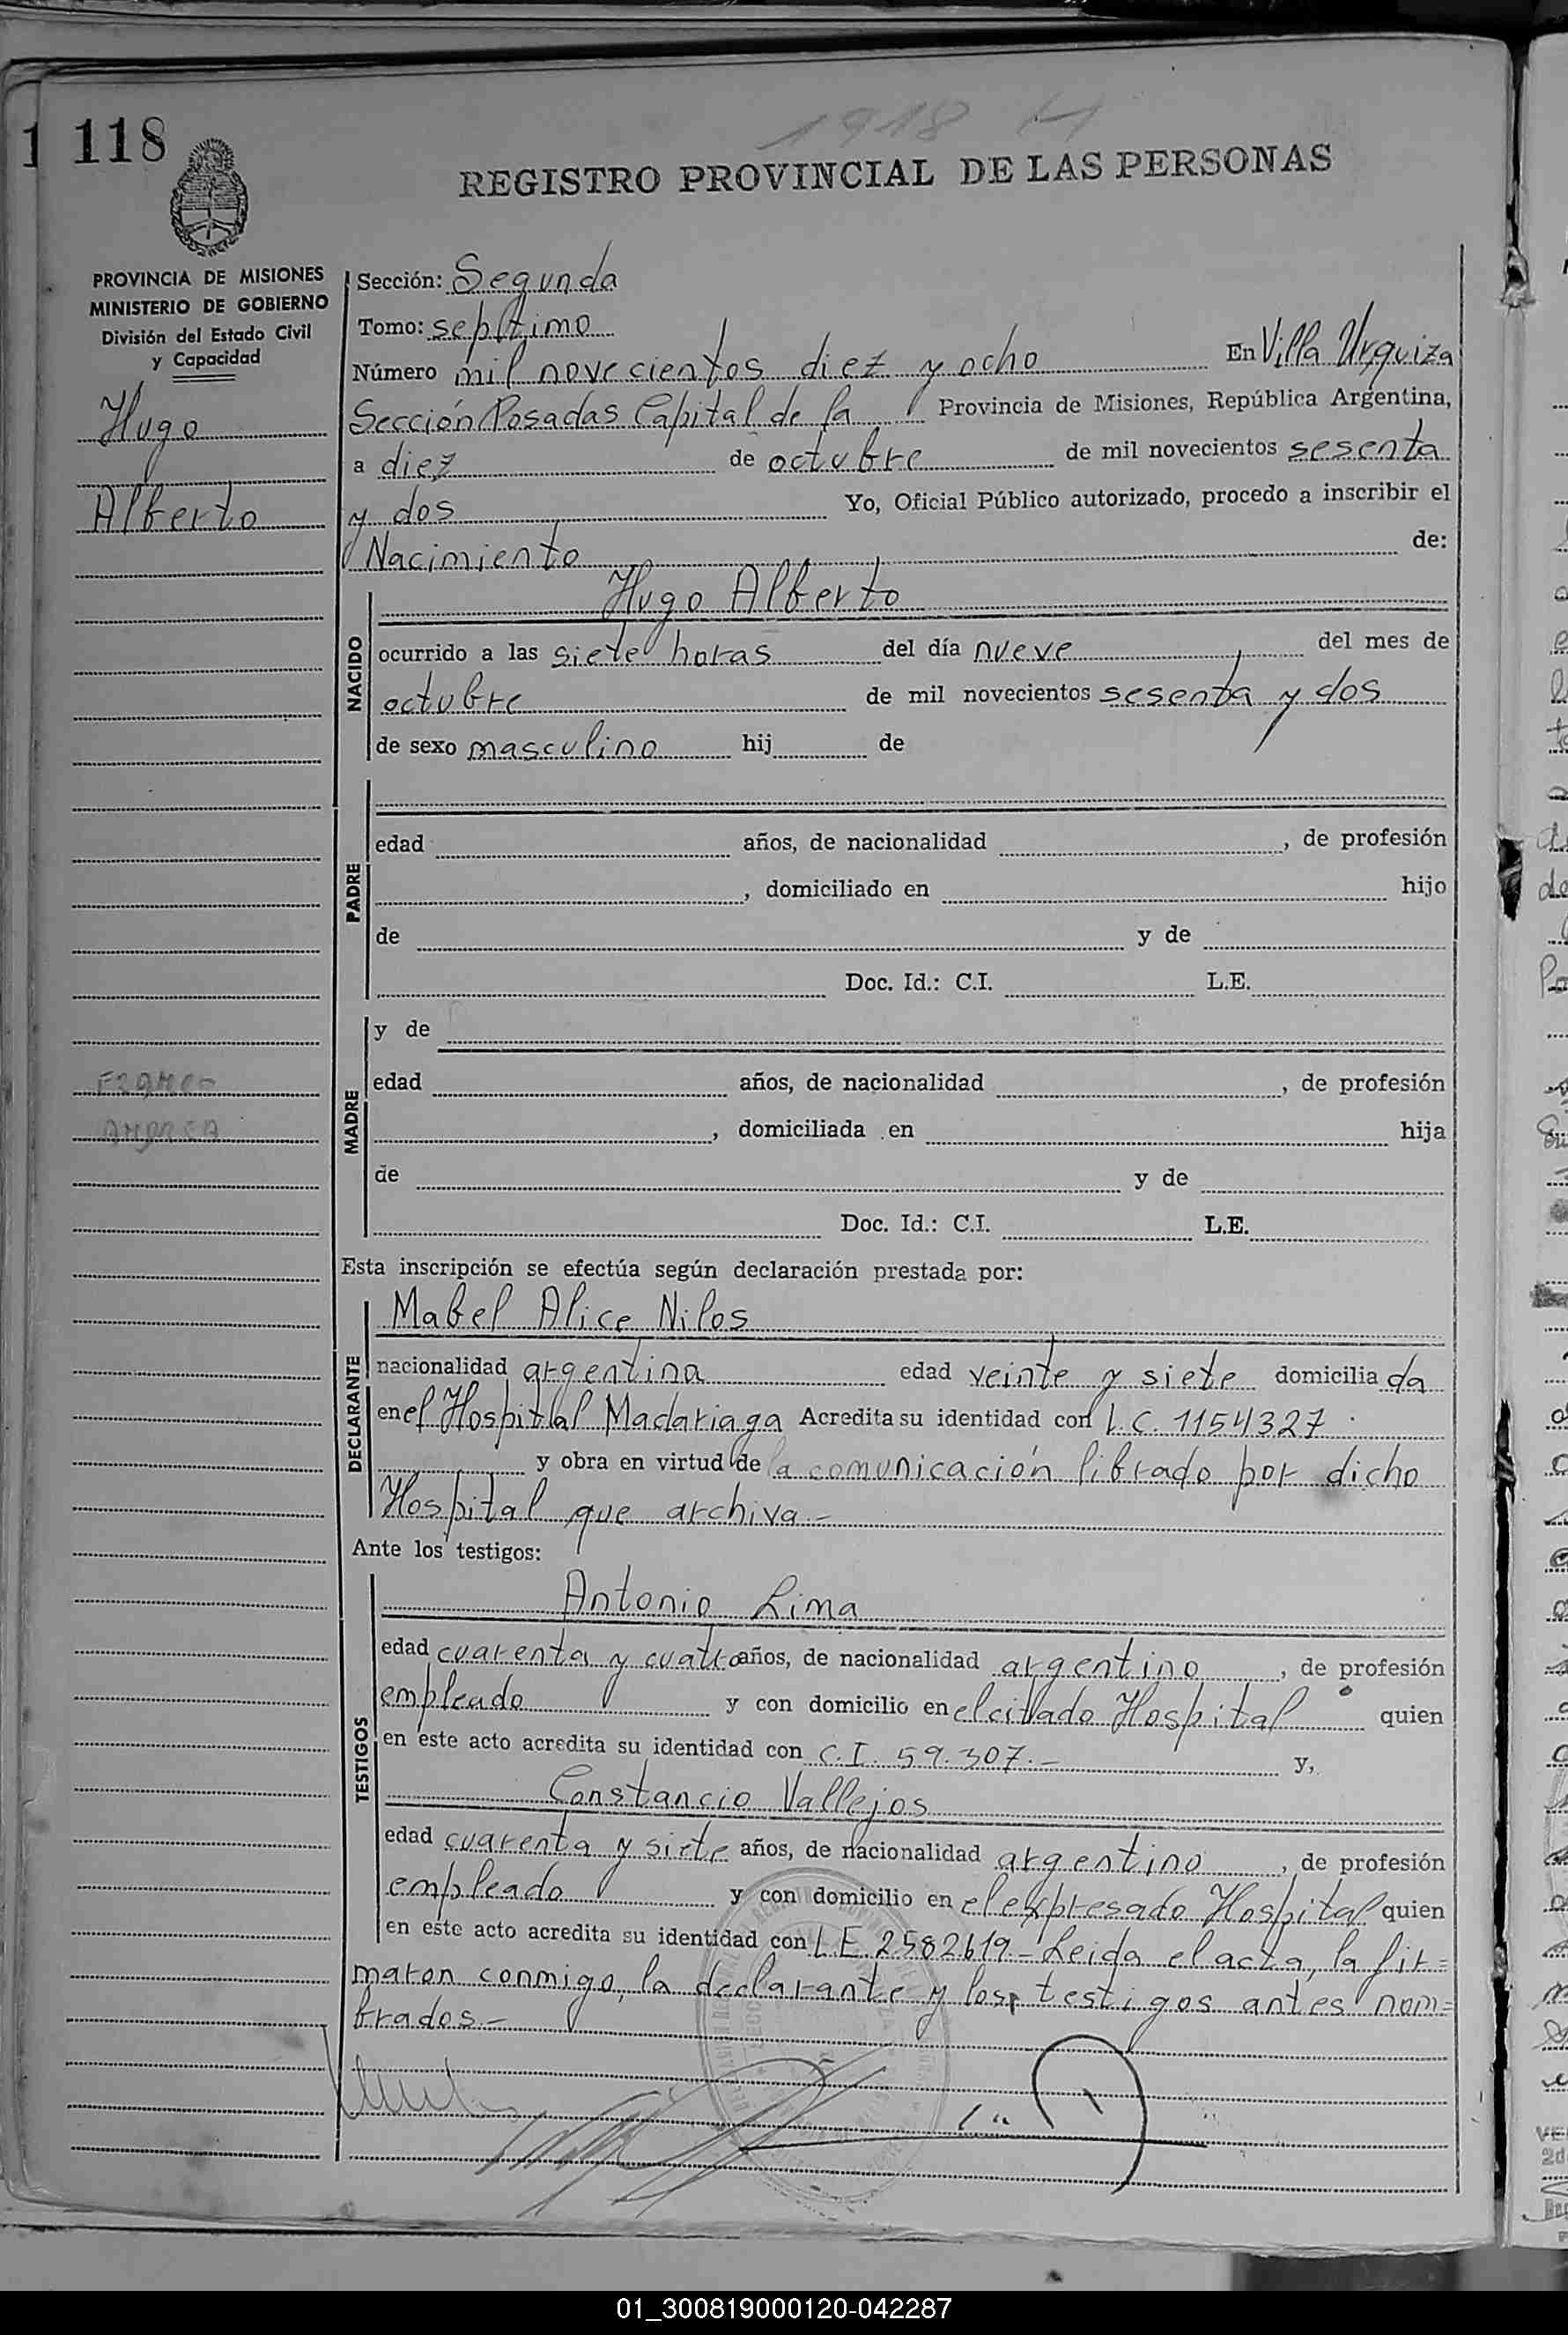 1918 H
1 118
REGISTRO PROVINCIAL DE LAS PERSONAS
PROVINCIA DE MISIONES
MINISTERIO DE GOBIERNO
División del Estado Civil
y Capacidad
Hugo
Alberto
Sección: Segunda
Tomo: septimo
Número mil novecientos diez y ocho En Villa Urquiza
Sección Posadas Capital de la Provincia de Misiones, República Argentina,
a diez de octubre de mil novecientos sesenta
y dos Yo, Oficial Público autorizado, procedo a inscribir el
Nacimiento de:
NACIDO
Hugo Alberto
ocurrido a las siete horas del día nueve del mes de
octubre de mil novecientos sesenta y dos
de sexo masculino hij de
PADRE
edad años, de nacionalidad , de profesión
, domiciliado en hijo
de y de
Doc. Id.: C.I. L.E.
MADRE
y de
edad años, de nacionalidad , de profesión
, domiciliada en hija
de y de
Doc. Id.: C.I. L.E.
Esta inscripción se efectúa según declaración prestada por:
DECLARANTE
Mabel Alice Nilos
nacionalidad argentina edad veinte y siete domicilia da
en el Hospital Madariaga Acredita su identidad con L.C. 1154327
y obra en virtud de la comunicación librado por dicho
Hospital que archiva.-
Ante los testigos:
TESTIGOS
Antonio Lima
edad cuarenta y cuatro años, de nacionalidad argentino , de profesión
empleado y con domicilio en el citado Hospital quien
en este acto acredita su identidad con C.I. 59.307.- y,
Constancio Vallejos
edad cuarenta y siete años, de nacionalidad argentino , de profesión
empleado y con domicilio en el expresado Hospital quien
en este acto acredita su identidad con L.E 2582619- Leida el acta, la fir=
maron conmigo, la declarante y los testigos antes nom=
brados.-
01_300819000120-042287